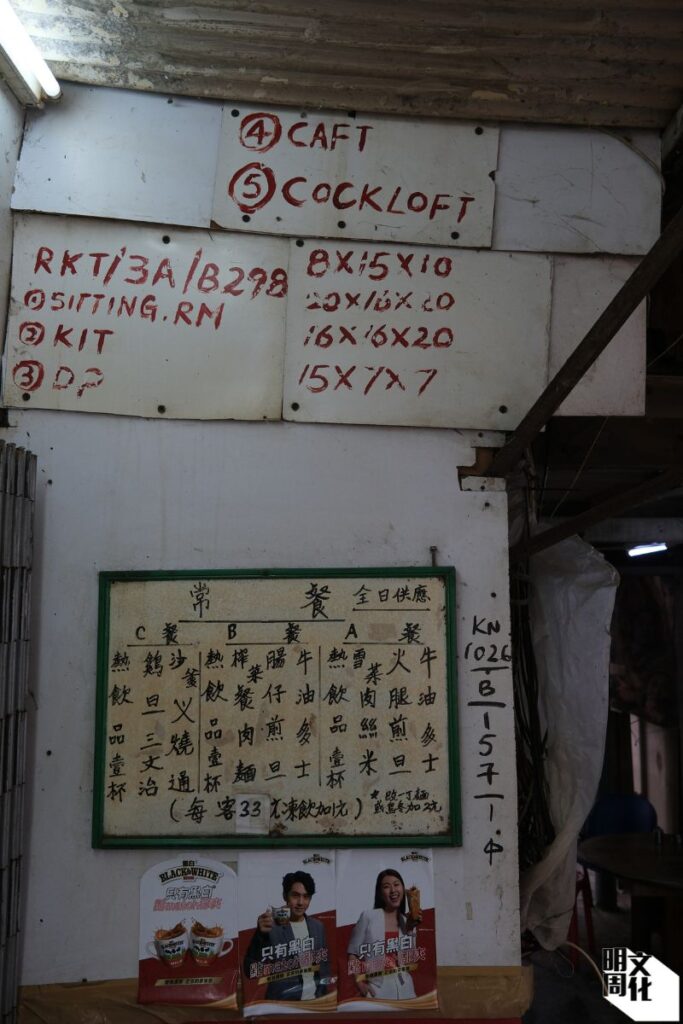 ④ CAFT
⑤ COCKLOFT
RKT/3A/B298
① SITTING.RM
② KIT
③ DP
8X15X10
20X16X20
16X16X20
15X7X7
常餐 全日供應
A 餐
牛油多士
火腿煎旦
雪菜肉絲米
熱飲品壹杯
B 餐
牛油多士
腸仔煎旦
榨菜餐肉麵
熱飲品壹杯
C 餐
沙爹叉燒通
鷄旦三文治
熱飲品壹杯
(每客33元凍飲加1元)
加2元
KN
1026
B
157
1
中
黑白
BLACK&WHITE
只有黑白
BLACK&WHITE
只有黑白
BLACK&WHITE
只有黑白
明周文化